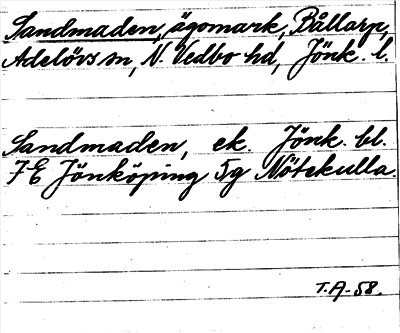 Sandmaden, ägomark, Bållarp,
Adelövs sn, N. Vedbo hd, Jönk. l.
Sandmaden, ek. Jönk. bl.
7E Jönköping 5g Nötekulla.
T.A-58.